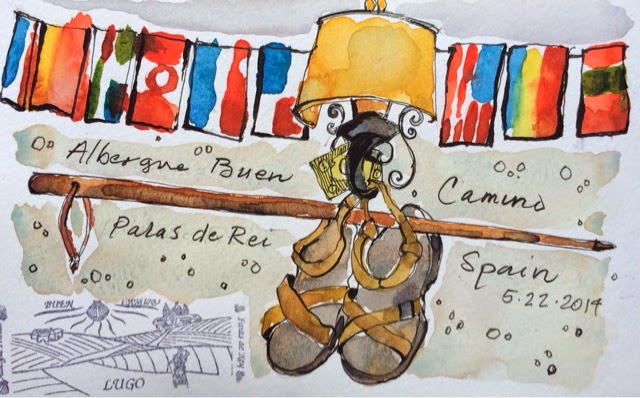 Albergue Buen
Camino
Palas de Rei
Spain
5.22.2014
BUEN CAMINO
LUGO